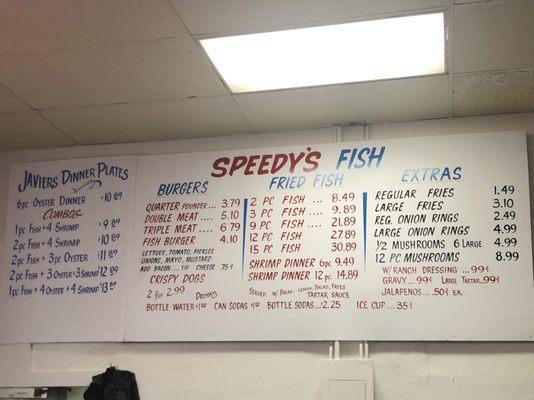 JAVIERS DINNER PLATES
6pc OYSTER DINNER $10.89
COMBOS
1pc FISH + 4 SHRIMP $9.89
2pc FISH + 4 SHRIMP $10.89
2pc FISH + 3pc OYSTER $11.89
2pc FISH + 3 OYSTER + 3 SHRIMP $12.89
1pc FISH + 4 OYSTER + 4 SHRIMP $13.89
SPEEDY'S FISH
BURGERS
QUARTER POUNDER ... 3.79
DOUBLE MEAT .... 5.10
TRIPLE MEAT .... 6.79
FISH BURGER 4.10
LETTUCE, TOMATO, PICKLES
ONIONS, MAYO, MUSTARD
ADD BACON .. 1.00 CHEESE .75¢
CRISPY DOGS
2 for 2.99
DRINKS
FRIED FISH
2 PC FISH ... 8.49
3 PC FISH .... 9.89
9 PC FISH .... 21.89
12 PC FISH 27.89
15 PC FISH 30.89
SHRIMP DINNER 6pc. 9.49
SHRIMP DINNER 12pc. 14.89
SERVED w/ BREAD, LEMON, SALAD, FRIES
TARTAR SAUCE
EXTRAS
REGULAR FRIES 1.49
LARGE FRIES 3.10
REG. ONION RINGS 2.49
LARGE ONION RINGS 4.99
½ MUSHROOMS 6 LARGE 4.99
12 PC MUSHROOMS 8.99
W/RANCH DRESSING ... 99¢
GRAVY ... 99¢ LARGE TARTAR .. 99¢
JALAPENOS .. .50¢ EA.
BOTTLE WATER $1.00 CAN SODAS $1.00 BOTTLE SODAS... $2.25 ICE CUP ... 35¢